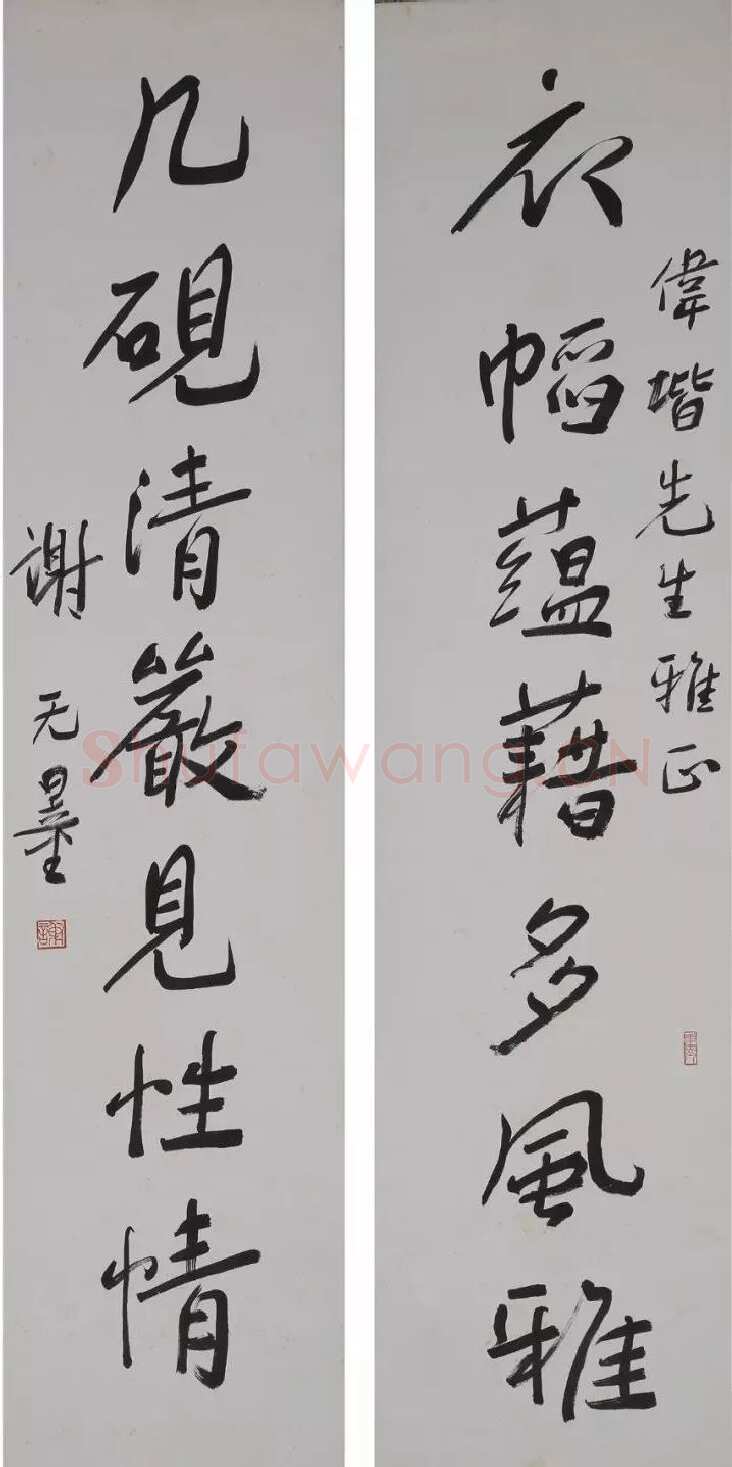 衣蘊藉多風雅
偉堦先生雅正
几硯清嚴見性情
謝无量
Shufawang.CN